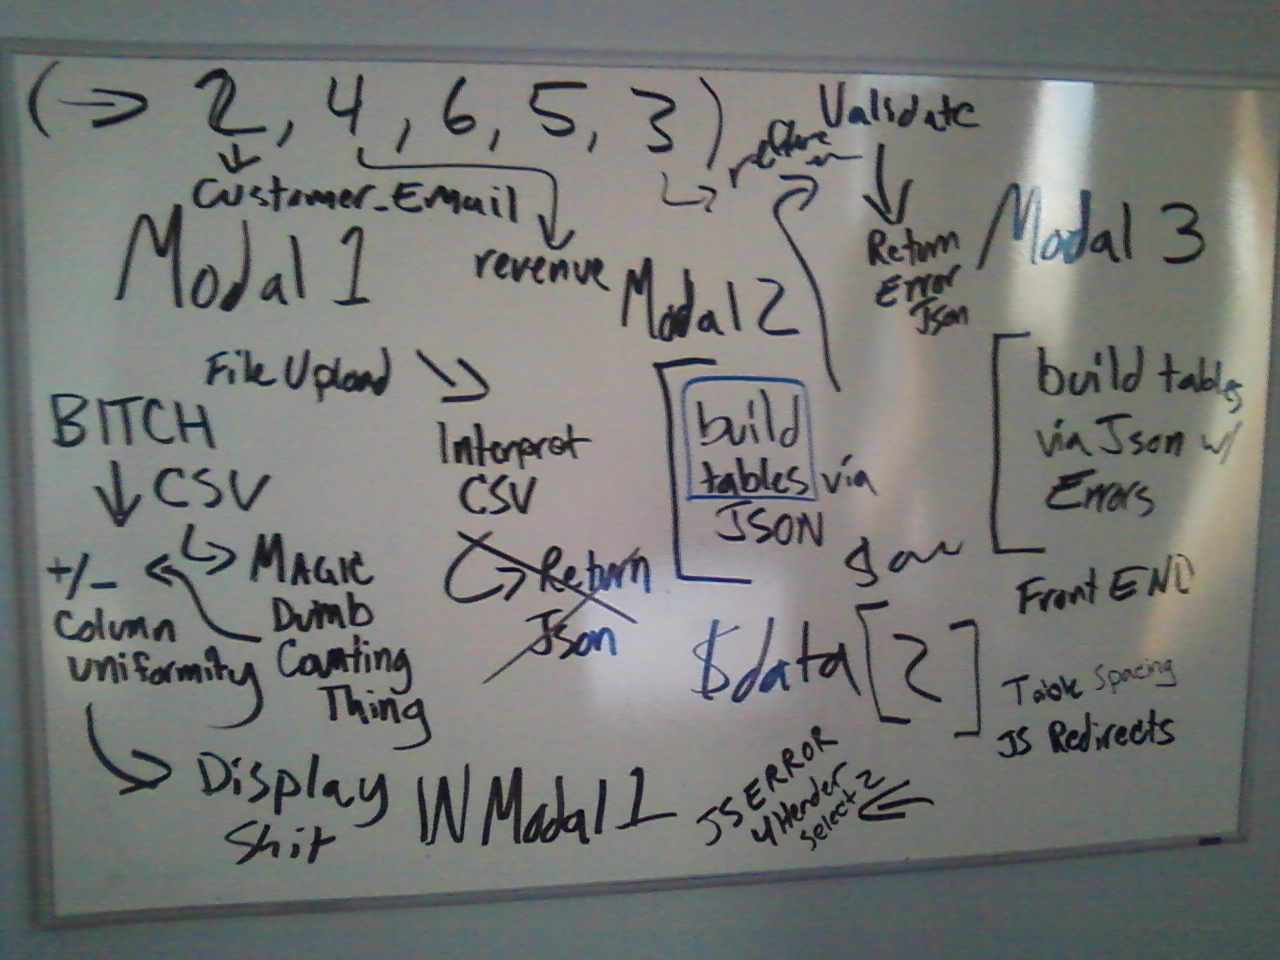 (→ 2, 4, 6, 5, 3)
Validate
Customer_Email
revenue
Return
Error
Json
Modal 1
Modal 2
Modal 3
File Upload
Interpret
CSV
Return
Json
BITCH
CSV
+/-
Column
uniformity
MAGIC
Dumb
Counting
Thing
Display
Shit
IN Modal 1
build
tables via
JSON
$data[2]
build tables
via Json w/
Errors
Front END
Table Spacing
JS Redirects
JS ERROR
4 Header
Select 2